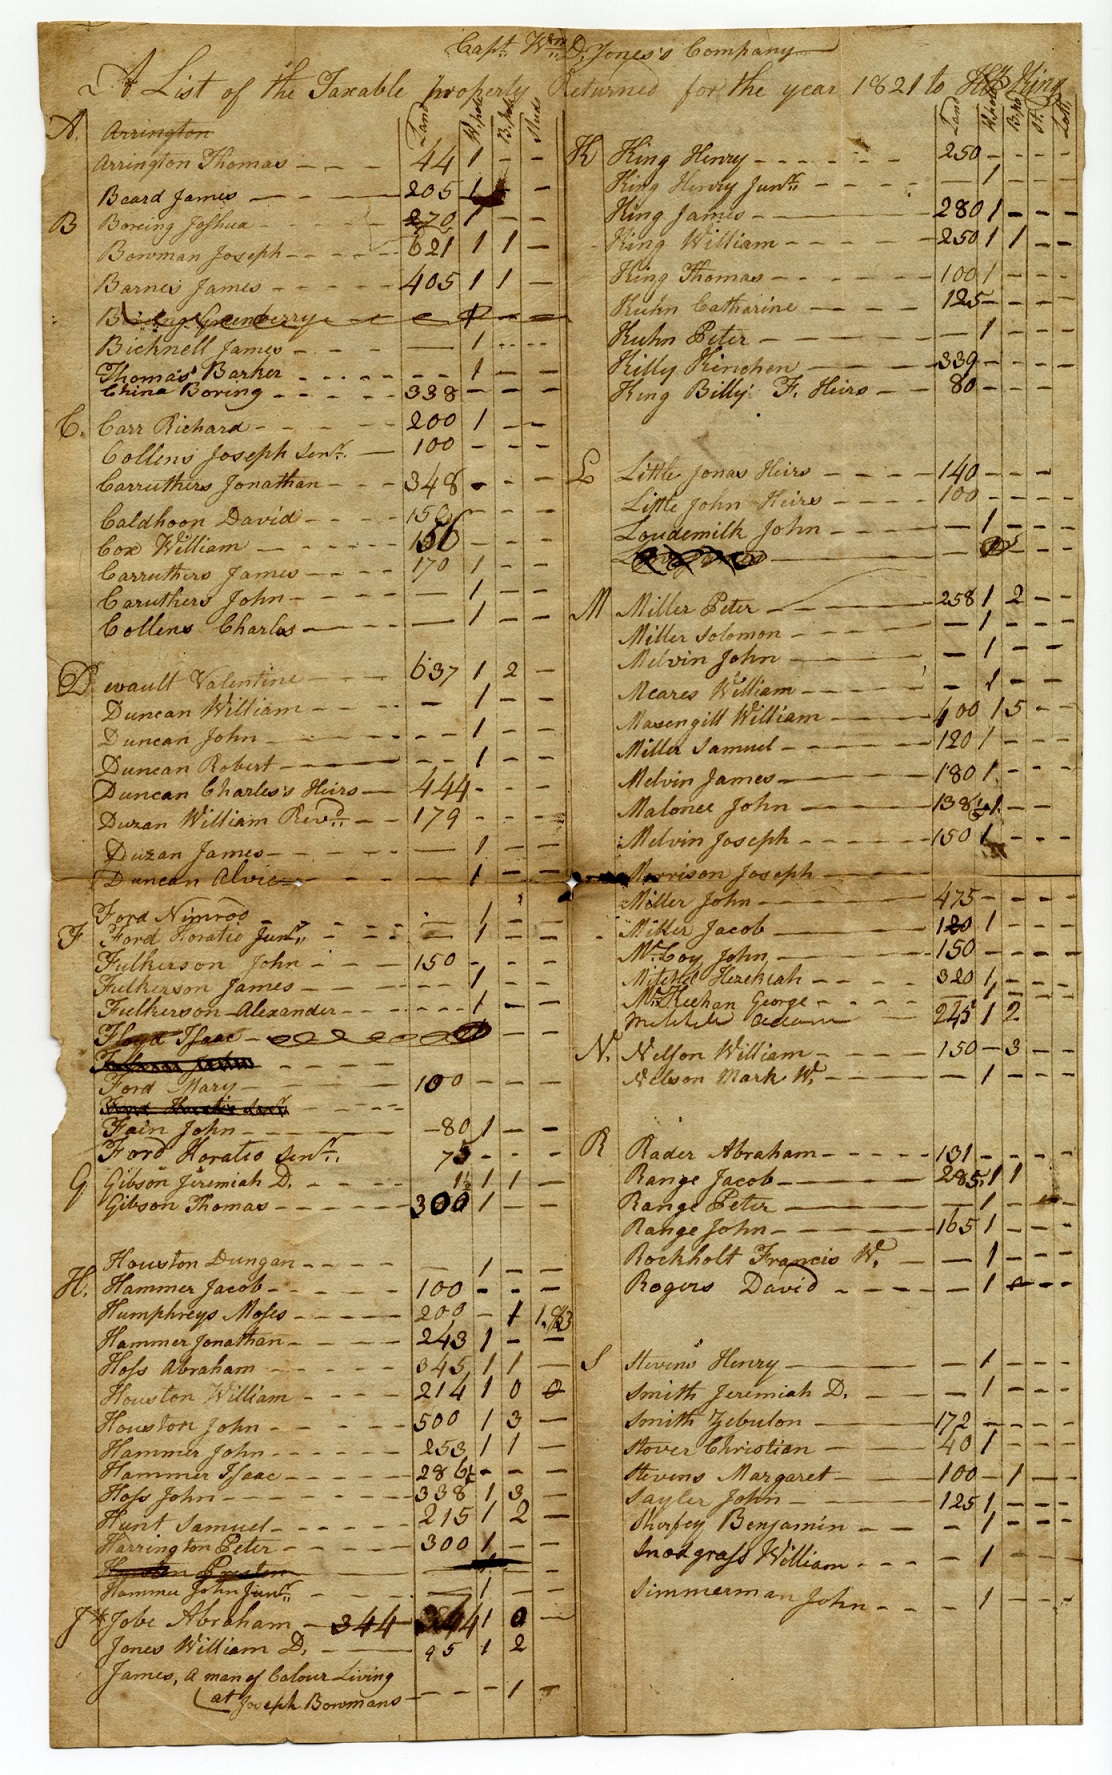 Capt. Wm. D. Jones's Company
A List of the Taxable property Returned for the year 1821 to King
Land W. pole B. pole Studs
A. Arrington
Arrington Thomas - - - 44 1 - -
Beard James - - - 205 1 - -
B Boreing Joshua - - - 270 1 - -
Bowman Joseph - - - 621 1 1 -
Barnes James - - - 405 1 1 -
Greenberry
Bicknell James - - - 1 - -
Thomas Barker - - - 1 - -
China Boring - - - 338 - - -
C. Carr Richard - - - 200 1 - -
Collens Joseph Senr. - 100 - - -
Carruthers Jonathan - - - 348 - - -
Caldhoon David - - - 150 - - -
Cox William - - - 156 - - -
Carruthers James - - - 170 1 - -
Caruthers John - - - 1 - -
Collens Charles - - - 1 - -
Devault Valentine - - - 637 1 2 -
Duncan William - - - 1 - -
Duncan John - - - 1 - -
Duncan Robert - - - 1 - -
Duncan Charles's Heirs - 444 - - -
Duzan William Revd. - - 179 - - -
Duzan James - - - 1 - -
Duncan Alvie - - - 1 - -
Ford Nimrod - - - 1 - -
F Ford Horatio Junr. - - - 1 - -
Fulkerson John - - 150 - - -
Fulkerson James - - - 1 - -
Fulkerson Alexander - - - 1 - -
Floyd Isaac
Ford Mary - 100 - - -
Ford Horatio Senr.
Fain John - 80 1 - -
Ford Horatio Senr. 75 - - -
G Gibson Jeremiah D. - - - 1½ 1 1 -
Gibson Thomas - - - 300 1 - -
Houston Dungan - - - 1 - -
H. Hammer Jacob - - - 100 - - -
Humphreys Moses - - - 200 - 1
Hammer Jonathan - - - 243 1 - -
Hoss Abraham - - - 345 1 1 -
Houston William - - - 214 1 0 0
Houston John - - - 500 1 3 -
Hammer John - - - 253 1 1 -
Hammer Isaac - - - 286 - - -
Hoss John - - - 338 1 3 -
Hunt Samuel - - - 215 1 2 -
Harrington Peter - - - 300 1 - -
Hammer John Junr. - 1 - -
J Jobe Abraham - 344 344 1 0 -
Jones William D. - 95 1 2
James, a man of Colour Living
at Joseph Bowmans - - - 1 -
Land W. pole B. po St. Lott
K King Henry - - - 250 - - - -
King Henry Junr. - - - 1 - - -
King James - 280 1 - - -
King William - - - 250 1 1 - -
King Thomas - - - 100 1 - - -
Kuhn Catharine - - - 125 - - - -
Kuhn Peter - - - 1 - - -
Killy Kinchen - 339 - - - -
King Billy F. Heirs - 80 - - -
L Little Jonas Heirs - - - 140 - - -
Little John Heirs - - - 100 - - - -
Loudemilk John - - - 1 - - -
M Miller Peter - 258 1 2 - -
Miller Solomon - - - 1 - - -
Melvin John - - 1 - - -
Meares William - - - 1 - - -
Masengill William - - - 400 1 5 - -
Miller Samuel - - - 120 1 - - -
Melvin James - 180 1 - - -
Malonee John - 138½ 1 - -
Melvin Joseph - - - 150 1 - - -
Morrison Joseph
Miller John - 475 - - - -
Miller Jacob - 120 1 - - -
McCoy John - 150 - - - -
Mitchel Hezekiah - 320 1 - - -
McKeehan George - - - 1 - - -
Mitchele Adam - 245 1 2
N. Nelson William - - - 150 - 3 - -
Nelson Mark W. - - - 1 - -
R Rader Abraham - - - 131 - - - -
Range Jacob - 285 1 1
Range Peter - 1 -
Range John - 165 1 - - -
Rockholt Francis W. - - 1 - - -
Rogers David - - - 1 - - -
S Stevens Henry - - 1 - - -
Smith Jeremiah D. - - - 1 - - -
Smith Zebulon - 172 - - - -
Stover Christian - 40 1 - - -
Stevens Margaret - 100 - 1 - -
Sayler John - 125 1 - - -
Benjamin - - - 1 - - -
Snodgrass William - - - 1 - - -
Simmerman John - - - 1 - - -